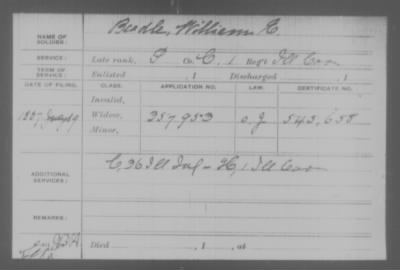 NAME OF SOLDIER: Beedle, William E.
SERVICE: Late rank, P Co. C, 1 Reg't Ill Cav
TERM OF SERVICE: Enlisted , 1 Discharged , 1
DATE OF FILING. CLASS. APPLICATION NO. LAW. CERTIFICATE NO.
Invalid,
Widow, 357.953 o. J 543.658
Minor,
ADDITIONAL SERVICES: C, 36 Ill Inf - H, 1 Ill Cav
REMARKS:
Died , 1 , at